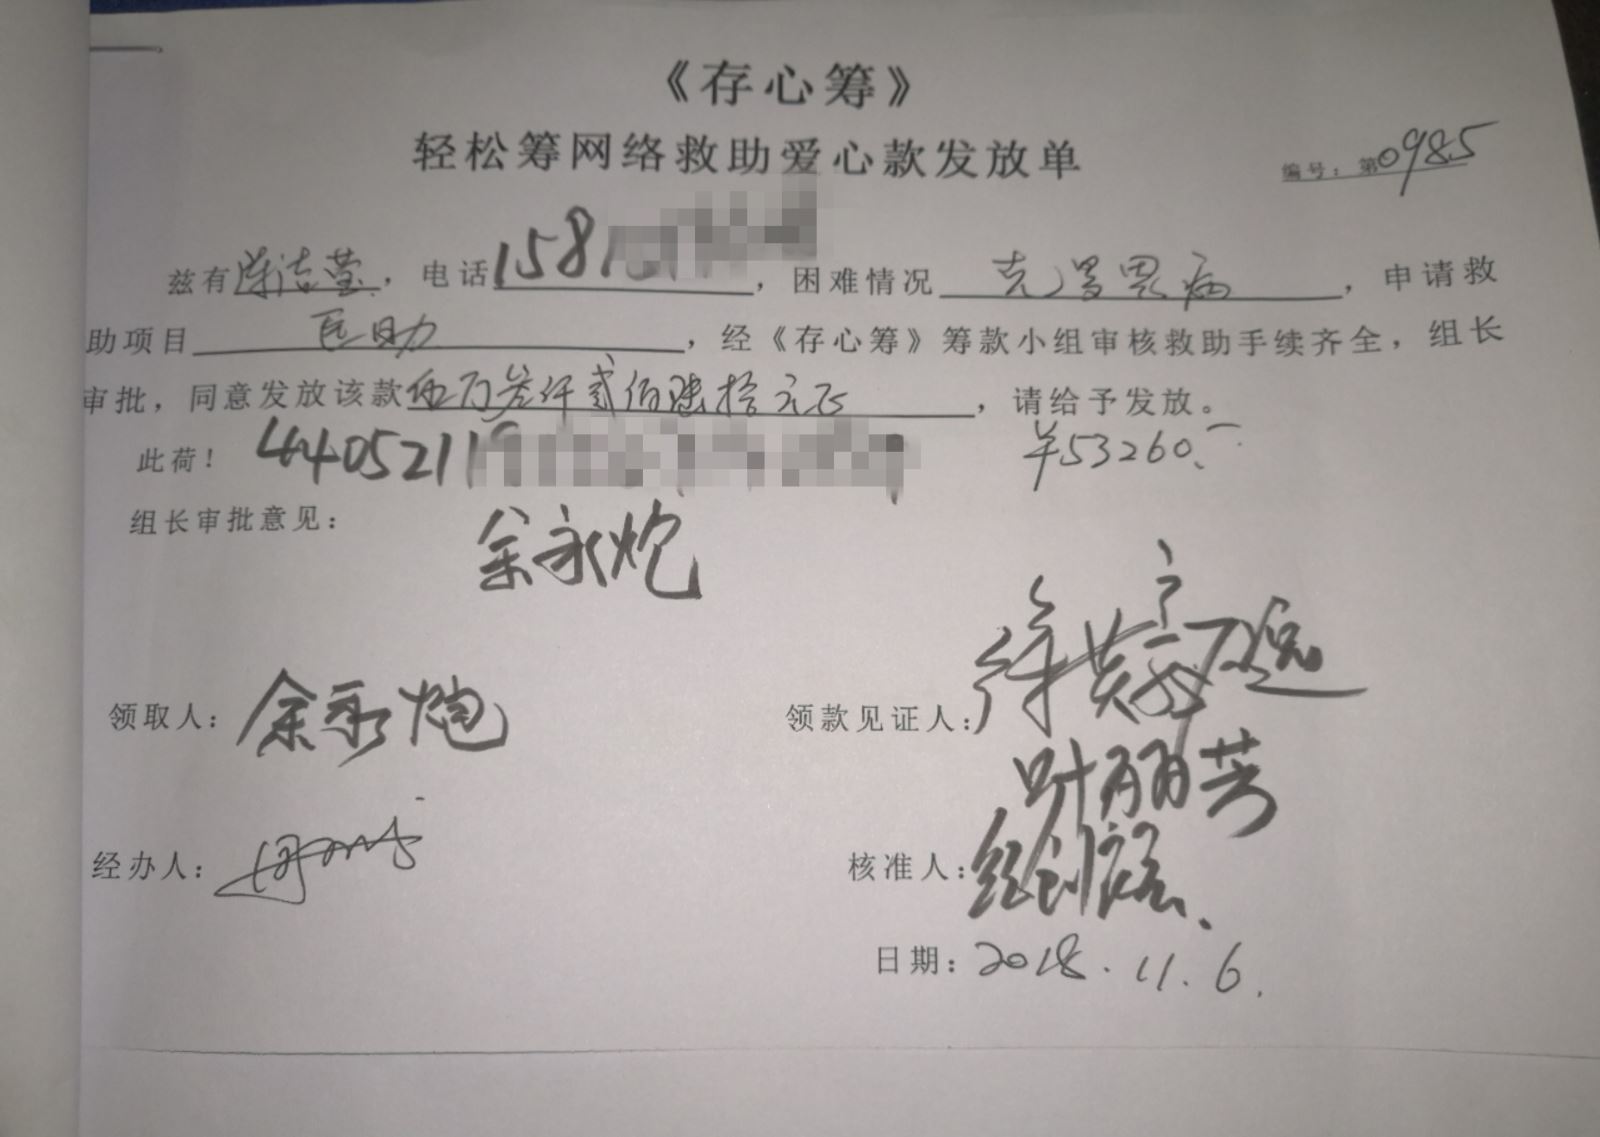 《存心筹》
轻松筹网络救助爱心款发放单
编号：第0985
兹有陈洁莹，电话1581，困难情况克罗恩病，申请救
助项目医助，经《存心筹》筹款小组审核救助手续齐全，组长
审批，同意发放该款伍万叁仟贰佰陆拾元正，请给予发放。
此荷！44052119 ￥53260.-
组长审批意见：
余永炮
领取人：余永炮 领款见证人：
叶丽芳
经办人： 核准人：
日期：2018.11.6.